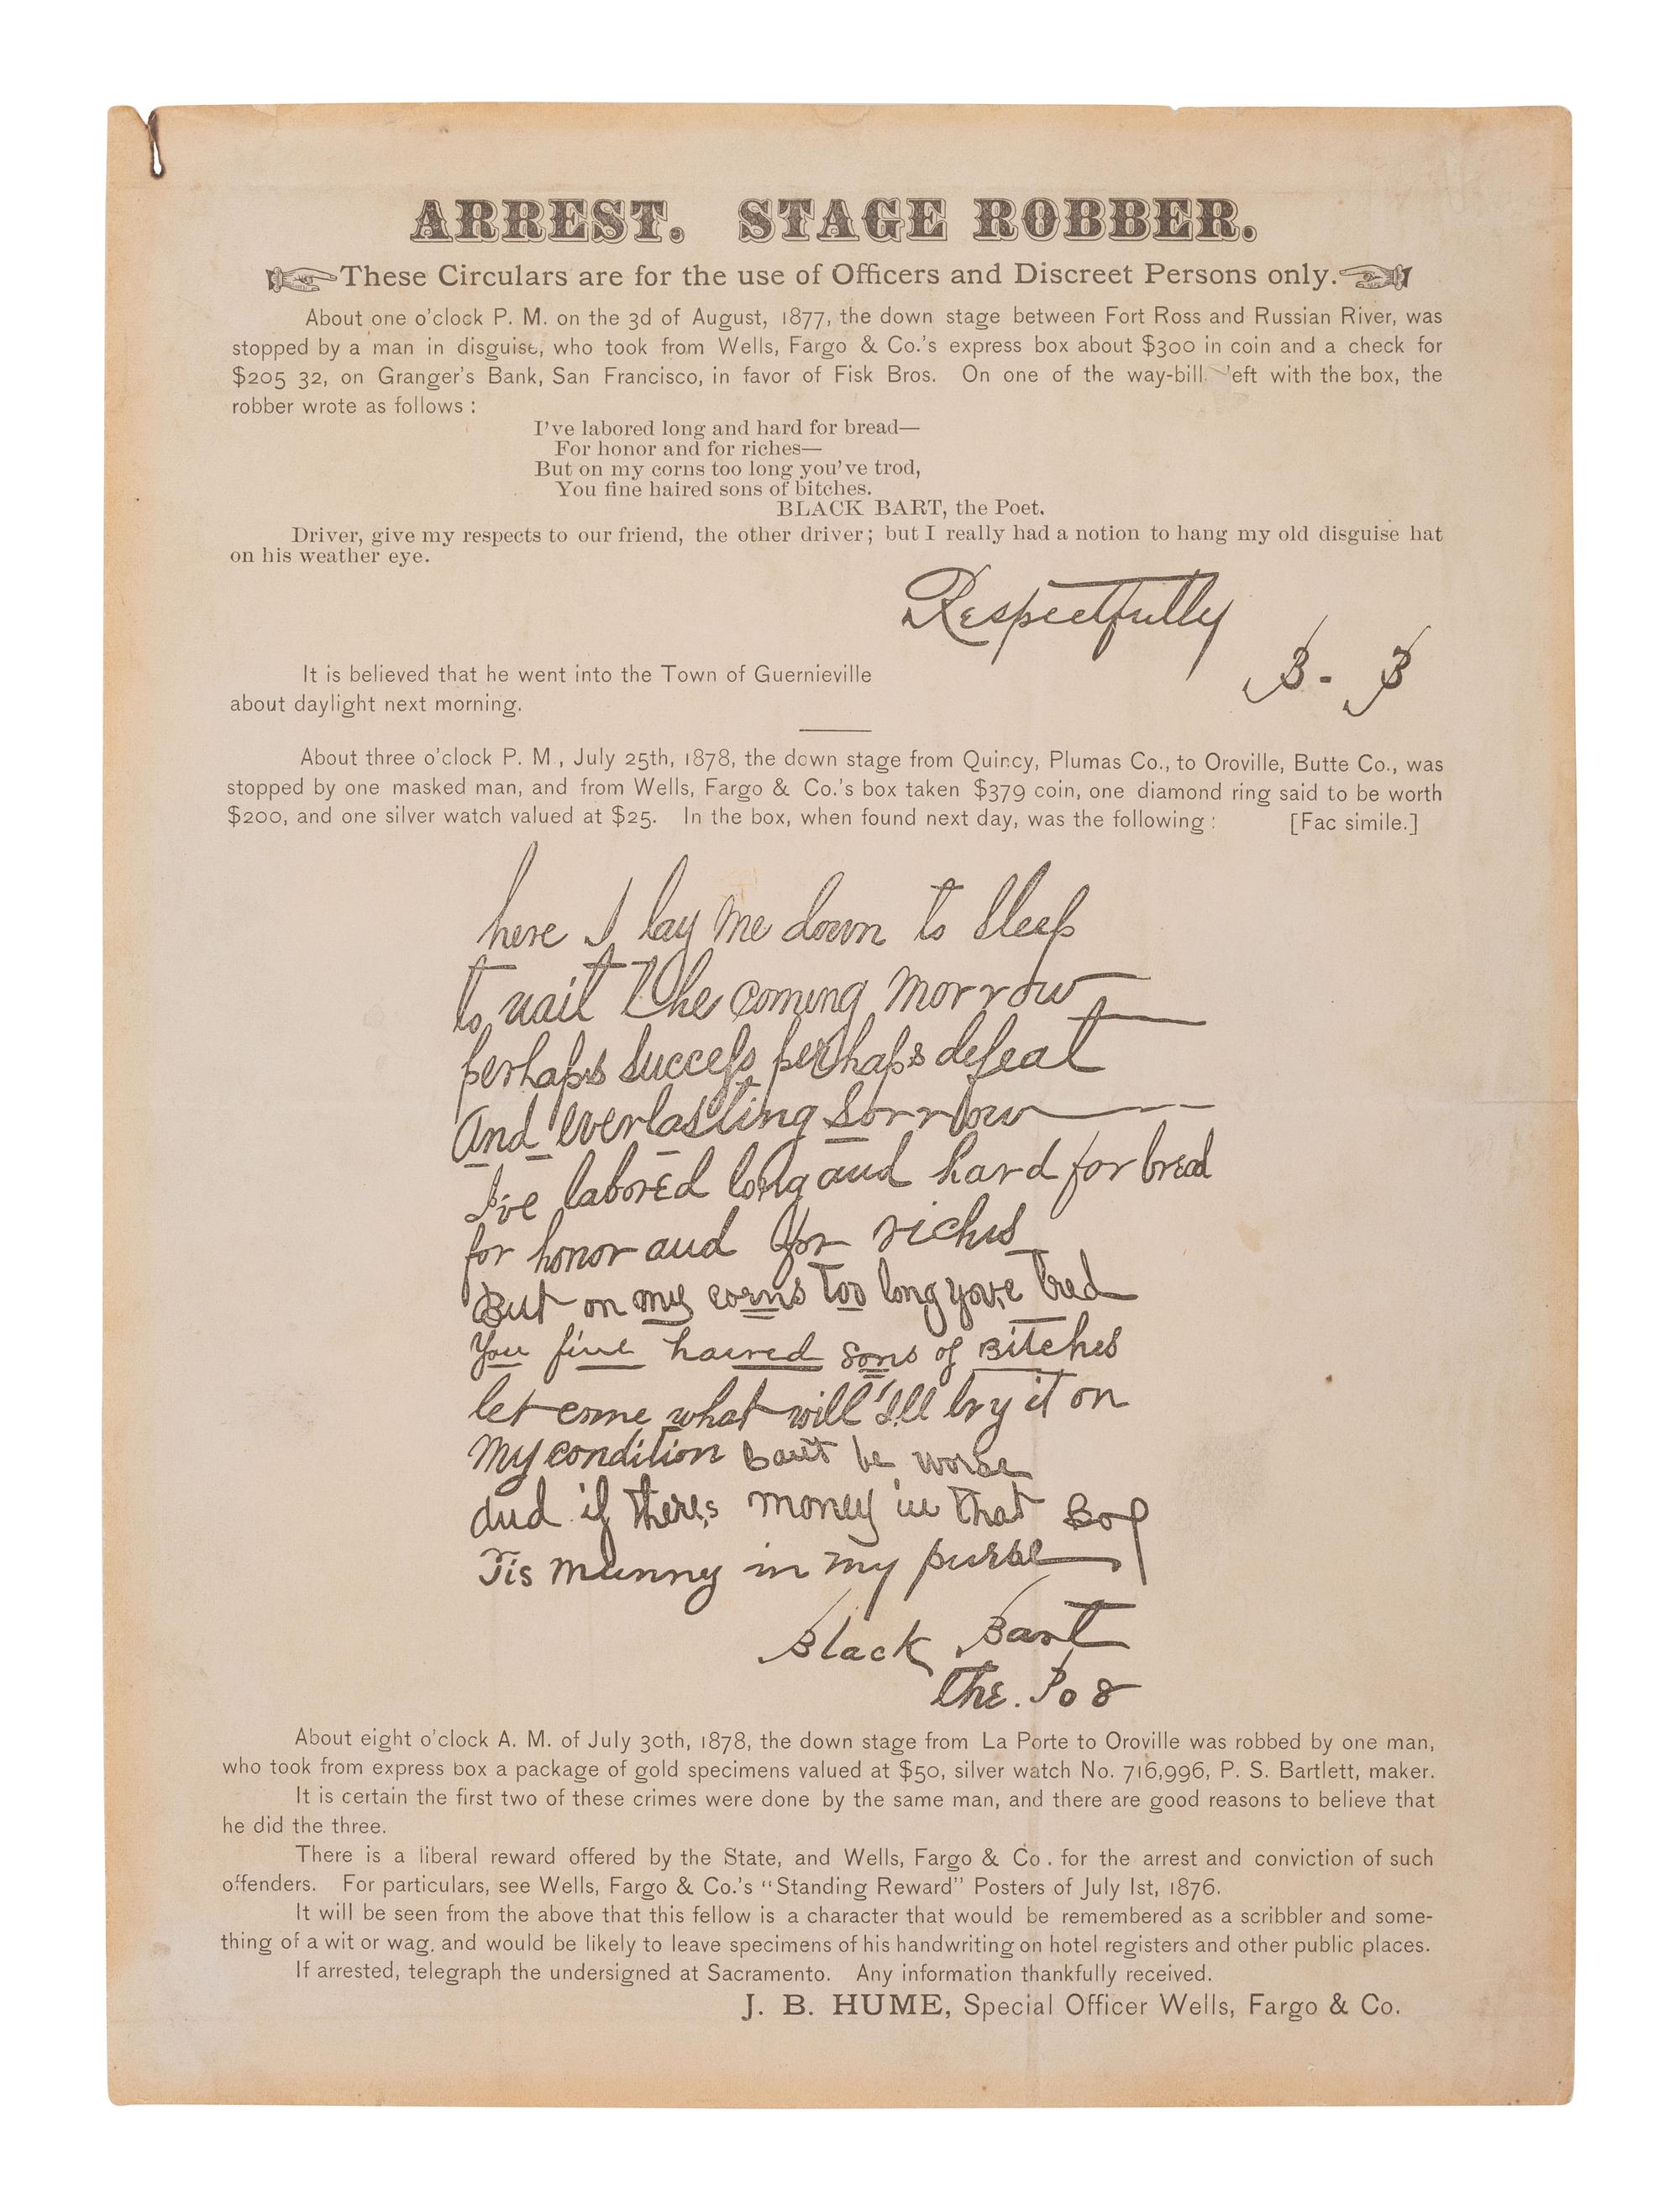 ARREST. STAGE ROBBER.
These Circulars are for the use of Officers and Discreet Persons only.
About one o'clock P. M. on the 3d of August, 1877, the down stage between Fort Ross and Russian River, was
stopped by a man in disguise, who took from Wells, Fargo & Co.'s express box about $300 in coin and a check for
$205 32, on Granger's Bank, San Francisco, in favor of Fisk Bros. On one of the way-bill 'eft with the box, the
robber wrote as follows :
I've labored long and hard for bread—
For honor and for riches—
But on my corns too long you've trod,
You fine haired sons of bitches.
BLACK BART, the Poet.
Driver, give my respects to our friend, the other driver; but I really had a notion to hang my old disguise hat
on his weather eye.
Respectfully
B. B
It is believed that he went into the Town of Guernieville
about daylight next morning.
About three o'clock P. M., July 25th, 1878, the down stage from Quincy, Plumas Co., to Oroville, Butte Co., was
stopped by one masked man, and from Wells, Fargo & Co.'s box taken $379 coin, one diamond ring said to be worth
$200, and one silver watch valued at $25. In the box, when found next day, was the following : [Fac simile.]
here I lay me down to Sleep
to wait the coming morrow
perhaps success perhaps defeat
And everlasting Sorrow
I've labored long and hard for bread
for honor and for riches
But on my corns too long yove tred
You fine haired sons of Bitches
let come what will I'll try it on
My condition can't be worse
and if theres money in that Box
Tis munny in my purse
Black Bart
the. Po 8
About eight o'clock A. M. of July 30th, 1878, the down stage from La Porte to Oroville was robbed by one man,
who took from express box a package of gold specimens valued at $50, silver watch No. 716,996, P. S. Bartlett, maker.
It is certain the first two of these crimes were done by the same man, and there are good reasons to believe that
he did the three.
There is a liberal reward offered by the State, and Wells, Fargo & Co. for the arrest and conviction of such
offenders. For particulars, see Wells, Fargo & Co.'s "Standing Reward" Posters of July 1st, 1876.
It will be seen from the above that this fellow is a character that would be remembered as a scribbler and some-
thing of a wit or wag, and would be likely to leave specimens of his handwriting on hotel registers and other public places.
If arrested, telegraph the undersigned at Sacramento. Any information thankfully received.
J. B. HUME, Special Officer Wells, Fargo & Co.